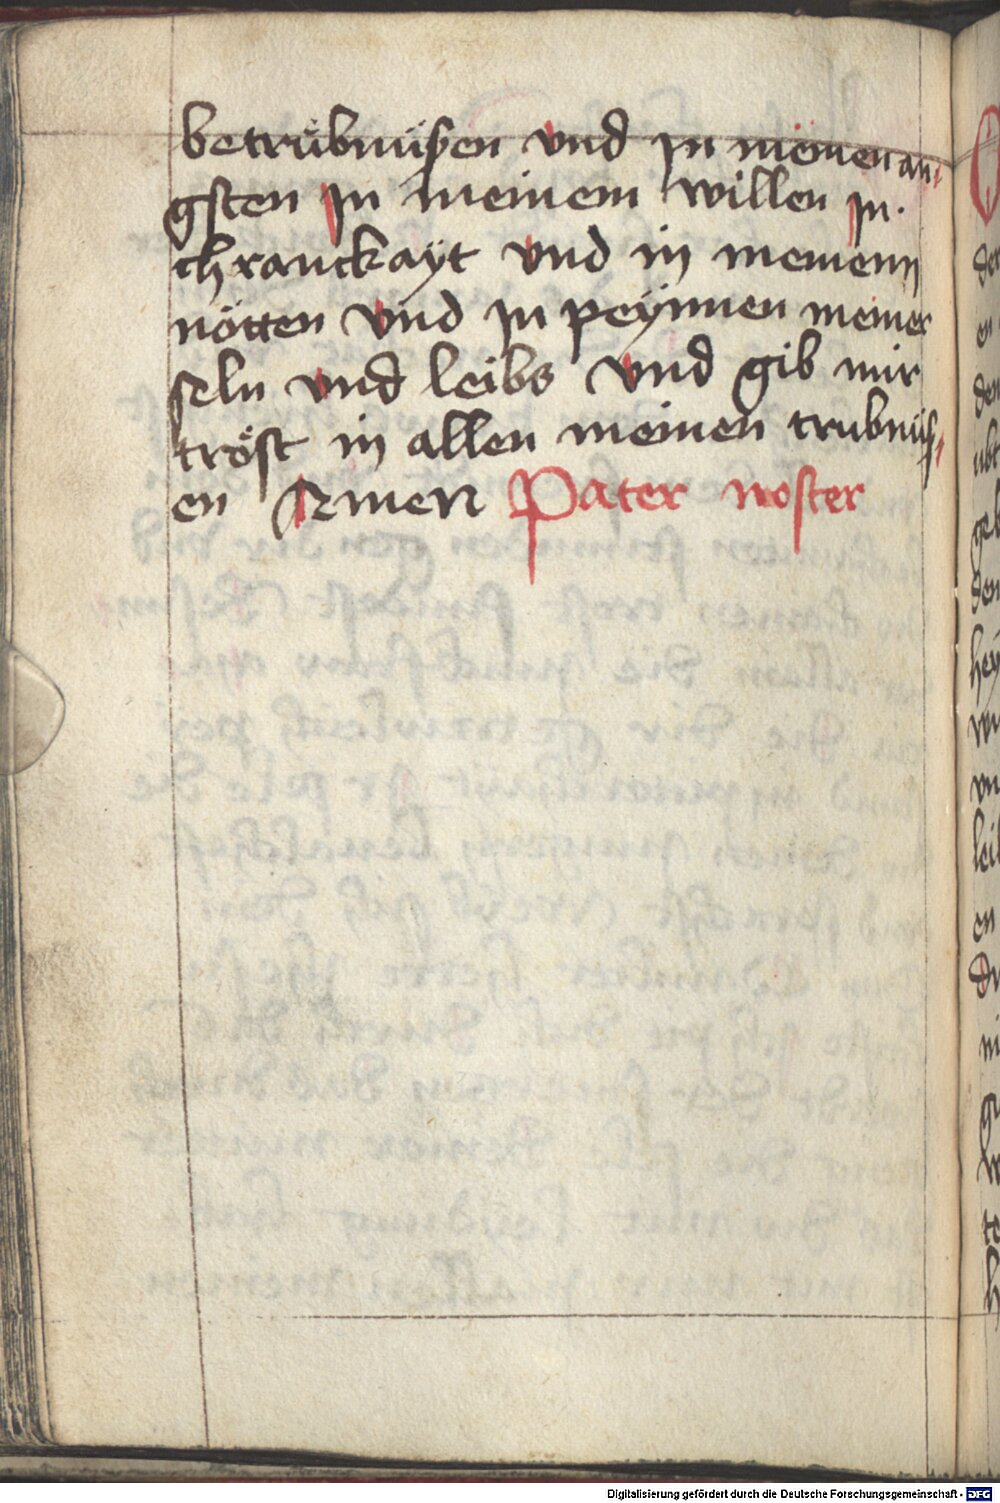 betrübnüsen vnd jn meinen an⸗
gsten Jn meinem willen jn.
chranckayt vnd in meinenn
nötten vnd jn peÿnnen meiner
seln vnd leibs vnd gib mir
tröst in allen meinen trubnüs⸗
en Amen Pater noster
Digitalisierung gefördert durch die Deutsche Forschungsgemeinschaft - DFG